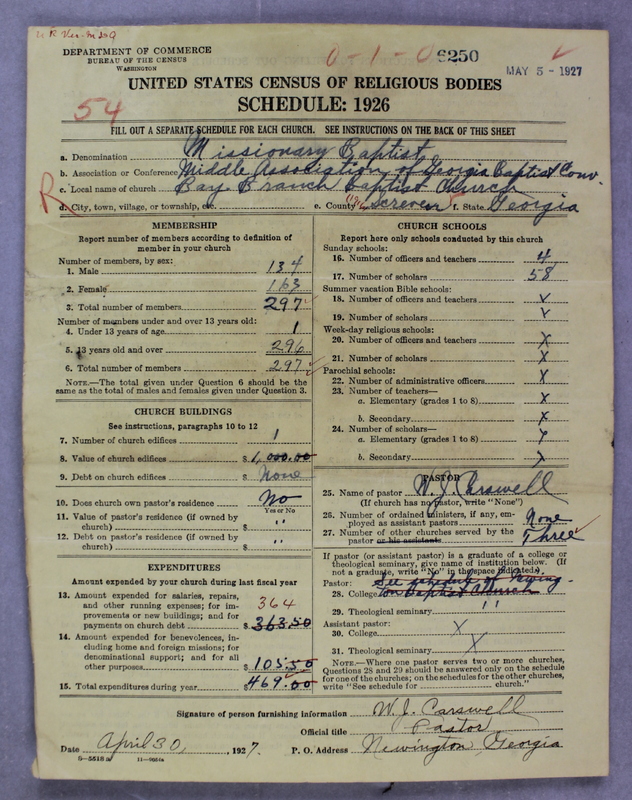 DEPARTMENT OF COMMERCE
BUREAU OF THE CENSUS
WASHINGTON
0-1-0
6250
MAY 5 - 1927
UNITED STATES CENSUS OF RELIGIOUS BODIES
SCHEDULE: 1926
54
FILL OUT A SEPARATE SCHEDULE FOR EACH CHURCH. SEE INSTRUCTIONS ON THE BACK OF THIS SHEET
a. Denomination Missionary Baptist
b. Association or Conference Middle Association of Georgia Baptist Conv.
c. Local name of church Bay Branch Baptist Church
R
d. City, town, village, or township, etc. e. County Screven f. State Georgia
MEMBERSHIP
Report number of members according to definition of member in your church
Number of members, by sex:
1. Male 134
2. Female 163
3. Total number of members 297
Number of members under and over 13 years old:
4. Under 13 years of age 1
5. 13 years old and over 296
6. Total number of members 297
NOTE.—The total given under Question 6 should be the
same as the total of males and females given under Question 3.
CHURCH BUILDINGS
See instructions, paragraphs 10 to 12
7. Number of church edifices 1
8. Value of church edifices $ 1,000.00
9. Debt on church edifices $ None
10. Does church own pastor's residence No
Yes or No
11. Value of pastor's residence (if owned by
church) $ "
12. Debt on pastor's residence (if owned by
church) $ "
EXPENDITURES
Amount expended by your church during last fiscal year
13. Amount expended for salaries, repairs,
and other running expenses; for im-
provements or new buildings; and for
payments on church debt $ 363.50
364
14. Amount expended for benevolences, in-
cluding home and foreign missions; for
denominational support; and for all
other purposes $ 105.50
15. Total expenditures during year $ 469.00
CHURCH SCHOOLS
Report here only schools conducted by this church
Sunday schools:
16. Number of officers and teachers 4
17. Number of scholars 58
Summer vacation Bible schools:
18. Number of officers and teachers ✓
19. Number of scholars ✓
Week-day religious schools:
20. Number of officers and teachers X
21. Number of scholars X
Parochial schools:
22. Number of administrative officers X
23. Number of teachers—
a. Elementary (grades 1 to 8) X
b. Secondary X
24. Number of scholars—
a. Elementary (grades 1 to 8) X
b. Secondary X
PASTOR
25. Name of pastor W. J. Carswell
(If church has no pastor, write "None")
26. Number of ordained ministers, if any, em-
ployed as assistant pastors None
27. Number of other churches served by the
pastor or his assistants Three
If pastor (or assistant pastor) is a graduate of a college or
theological seminary, give name of institution below. (If
not a graduate, write "No" in the space indicated.)
Pastor: See schedule of Newing-
28. College ton Baptist Church
29. Theological seminary "
Assistant pastor:
30. College X
31. Theological seminary X
NOTE.—Where one pastor serves two or more churches,
Questions 28 and 29 should be answered only on the schedule
for one of the churches; on the schedules for the other churches,
write "See schedule for ____ church."
Signature of person furnishing information W. J. Carswell
Official title Pastor
Date April 30, 1927. P. O. Address Newington, Georgia